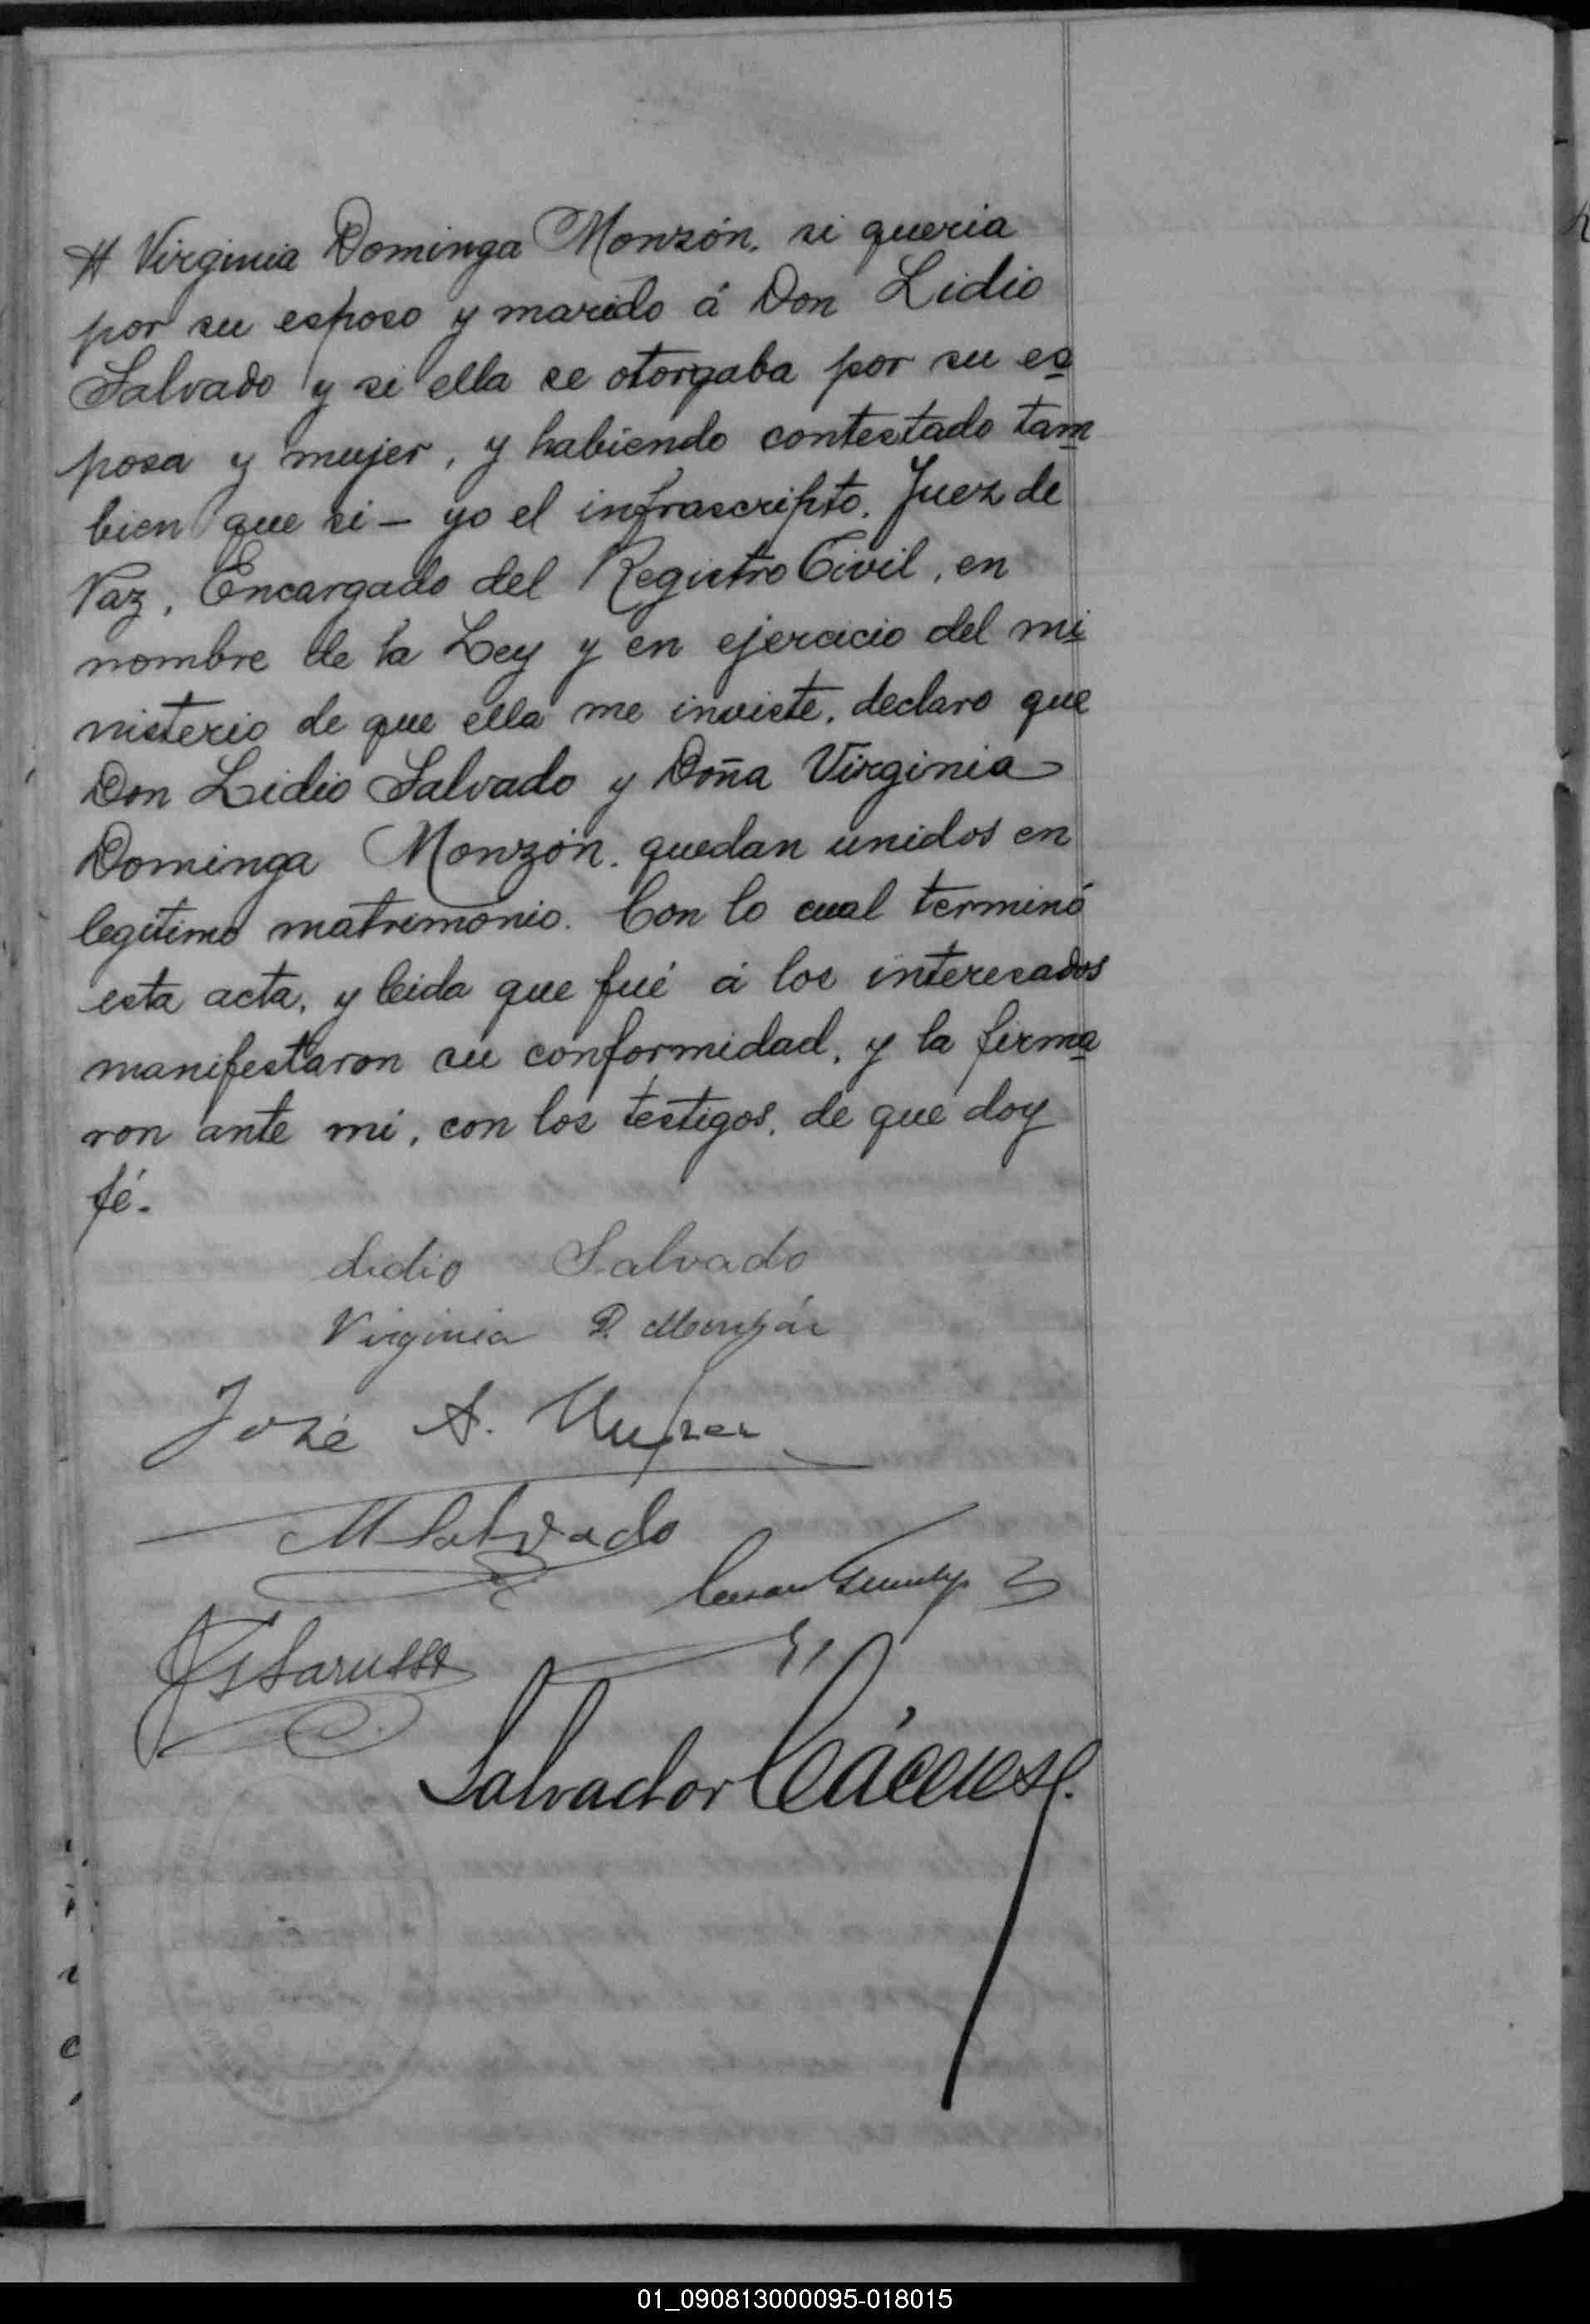 # Virginia Dominga Monzón, si queria
por su esposo y marido á Don Lidio
Salvado y si ella se otorgaba por su es
posa y mujer, y habiendo contestado tam
bien que si – yo el infrascripto, Juez de
Paz, Encargado del Registro Civil, en
nombre de la Ley y en ejercicio del mi
nisterio de que ella me inviste, declaro que
Don Lidio Salvado y Doña Virginia
Dominga Monzón, quedan unidos en
legitimo matrimonio. Con lo cual terminó
esta acta, y leida que fué á los interesados
manifestaron su conformidad, y la firma
ron ante mi, con los testigos, de que doy
fé.
Lidio Salvado
Virginia D. Monzón
José A.
M Salvado
Salvador Cáceres
01_090813000095-018015